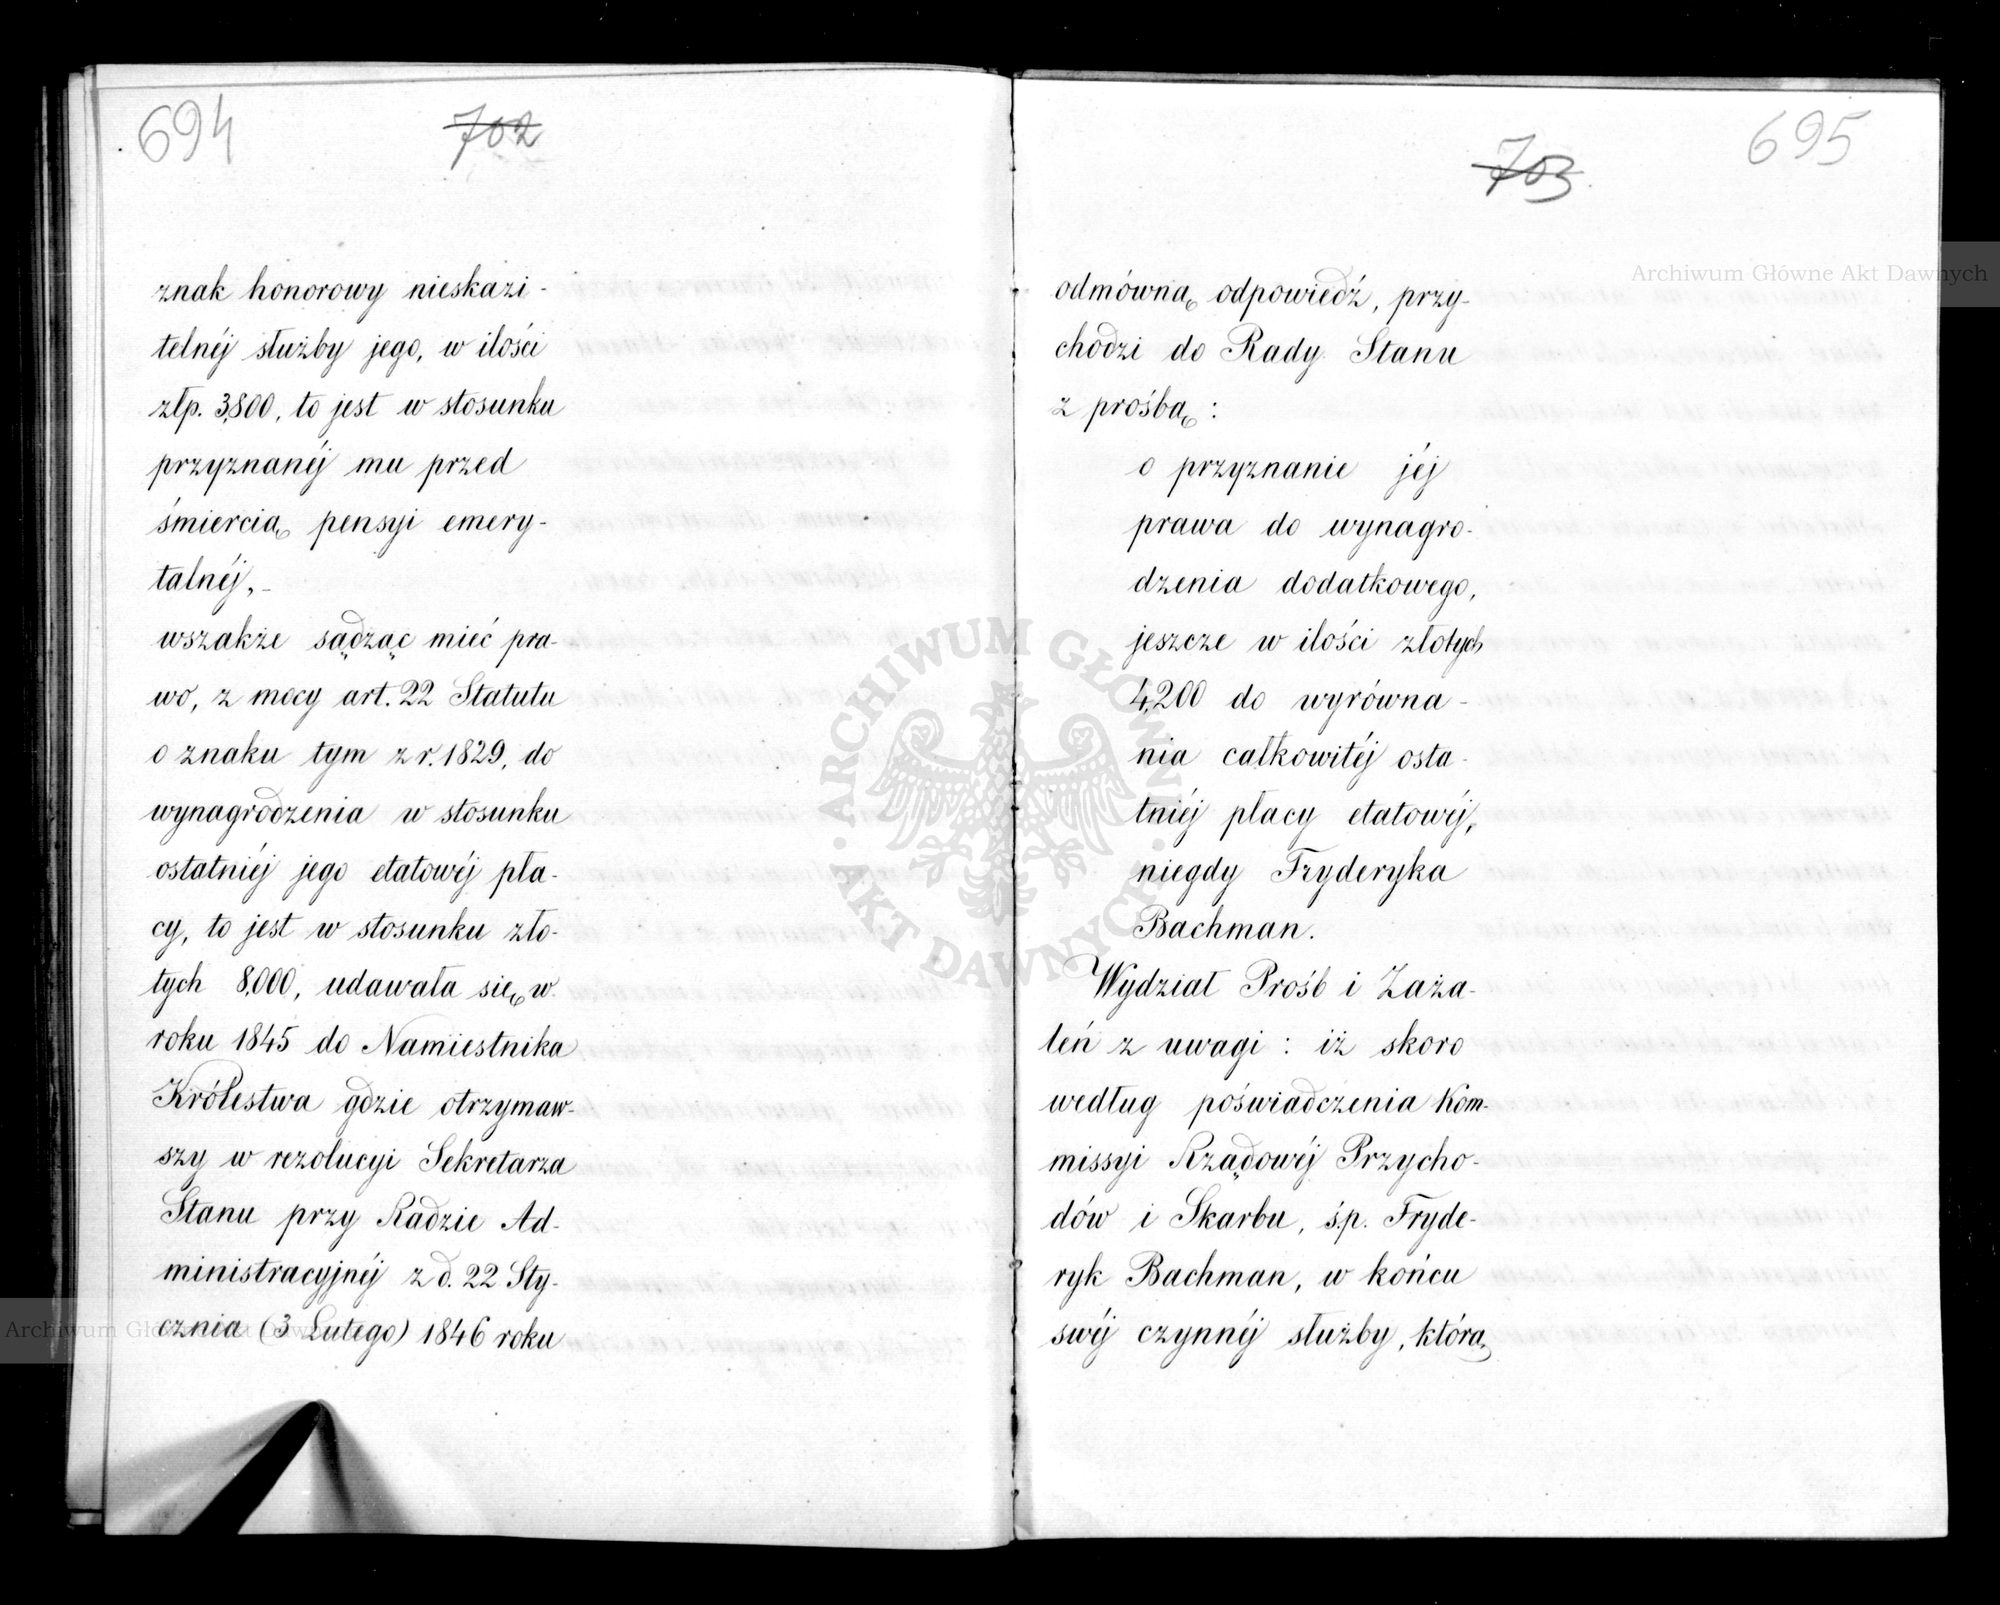 694
702
znak honorowy nieskazi-
telnéj służby jego, w ilości
złp. 3,800, to jest w stosunku
przyznanéj mu przed
śmiercią pensyi emery-
talnéj,-
wszakże sądząc mieć pra-
wo, z mocy art. 22 Statutu
o znaku tym z r. 1829, do
wynagrodzenia w stosunku
ostatniéj jego etatowéj pła-
cy, to jest w stosunku zło-
tych 8,000, udawała się w
roku 1845 do Namiestnika
Królestwa gdzie otrzymaw-
szy w rezolucyi Sekretarza
Stanu przy Radzie Ad-
ministracyjnéj z d. 22 Sty-
cznia (3 Lutego) 1846 roku
695
703
odmówną odpowiedź, przy-
chodzi do Rady Stanu
z prośbą :
o przyznanie jéj
prawa do wynagro-
dzenia dodatkowego,
jeszcze w ilości złotych
4,200 do wyrówna-
nia całkowitéj osta-
tniéj płacy etatowéj,
niegdy Fryderyka
Bachman.
Wydział Próśb i Zaża-
leń z uwagi : iż skoro
według poświadczenia Kom-
missyi Rządowéj Przycho-
dów i Skarbu, ś.p. Fryde-
ryk Bachman, w końcu
swéj czynnéj służby, którą
Archiwum Główne Akt Dawnych
ARCHIWUM GŁÓWNE · AKT DAWNYCH ·
Archiwum Główne Akt Dawnych